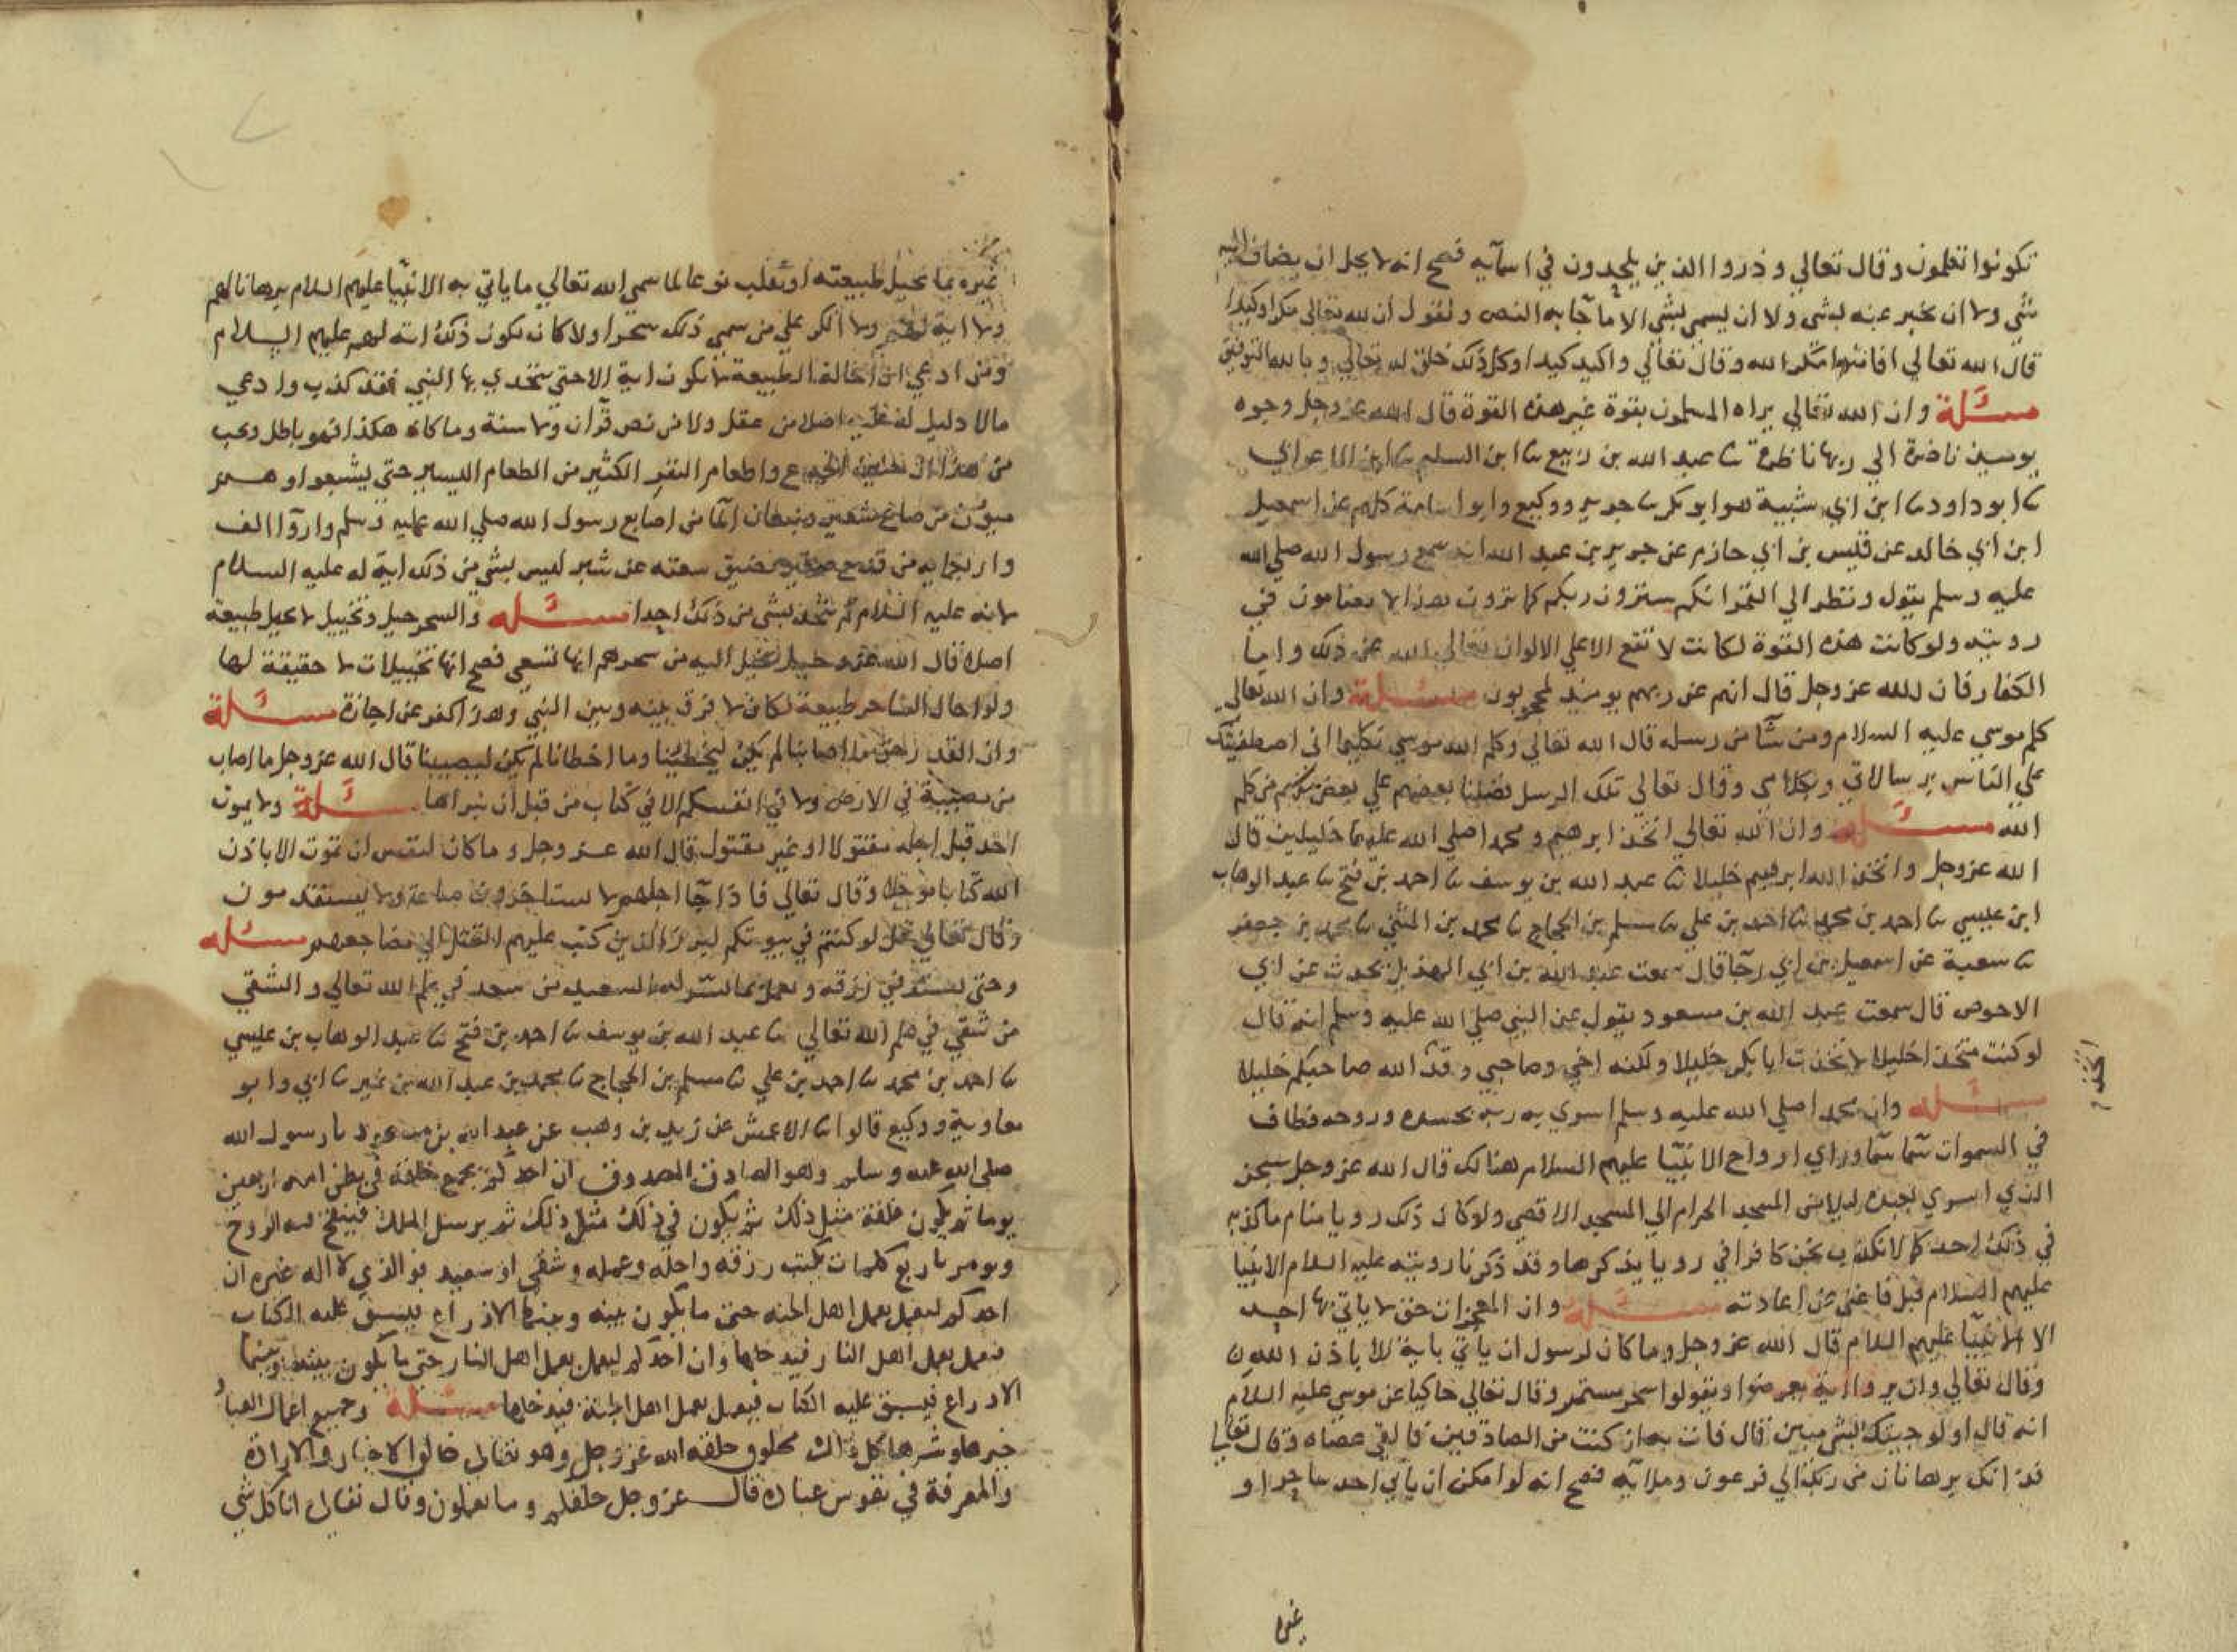 تكونوا تعلمون وقال تعالي وذروا الذين يلحدون في اسمآيه فصح انه لا يحل ان يضاف اليه
شي ولا ان يخبر عنه بشي ولا ان يسمي بشي الا ما جآ به النص ونقول ان لله تعالي مكرا وكيدا
قال الله تعالي افامنوا مكر الله وقال تعالي واكيد كيدا وكل ذلك خلق لله تعالي وبالله التوفيق
مسئلة وان الله تعالي يراه المسلمون بقوة غير هذه القوة قال الله عز وجل وجوه
يوميذ ناضرة الي ربها ناظرة نا عبد الله بن ربيع نا ابن السليم نا ابن الاعرابي
نا ابو داود نا ابن ابي شيبة هو ابو بكر نا جرير ووكيع وابو اسامة كلهم عن اسمعيل
ابن ابي خالد عن قيس بن ابي حازم عن جرير بن عبد الله انه سمع رسول الله صلي الله
عليه وسلم يقول ونظر الي القمر انكم سترون ربكم كما ترون هذا لا تضامون في
رويته ولو كانت هذه القوة لكانت لا تقع الا علي الالوان تعالي الله عن ذلك واما
الكفار فان الله عز وجل قال انهم عن ربهم يوميذ لمحجوبون مسئلة وان الله تعالي
كلم موسي عليه السلام ومن شآ من رسله قال الله تعالي وكلم الله موسي تكليما اني اصطفيتك
علي الناس برسالاتي وبكلامي وقال تعالي تلك الرسل فضلنا بعضهم علي بعض منهم من كلم
الله مسئلة وان الله تعالي اتخذ ابرهيم ومحمدا صلي الله عليهما خليلين قال
الله عز وجل واتخذ الله ابرهيم خليلا نا عبد الله بن يوسف نا احمد بن فتح نا عبد الوهاب
ابن عيسي نا احمد بن محمد نا احمد بن علي نا مسلم بن الحجاج نا محمد بن المثني نا محمد بن جعفر
نا سعبة عن اسمعيل بن ابي رجآ قال سمعت عبد الله بن ابي الهذيل يحدث عن ابي
الاحوص قال سمعت عبد الله بن مسعود يقول عن النبي صلي الله عليه وسلم انه قال
لو كنت متخذا خليلا لاتخذت ابا بكر خليلا ولكنه اخي وصاحبي وقد الله صاحبكم خليلا
اتخذ
مسئله وان محمدا صلي الله عليه وسلم اسري به ربه بجسده وروحه فطاف
في السموات سمآ سمآ وراي ارواح الانبيا عليهم السلام هنالك قال الله عز وجل سبحن
الذي اسري بعبده ليلا من المسجد الحرام الي المسجد الاقصي ولو كان ذلك رويا منام ما كذبه
في ذلك احد كما لا نكذب نحن كافرا في رويا يذكرها وقد ذكرنا رويته عليه السلام الانبيا
عليهم السلام قبل فاغني عن اعادته مسئلة وان المعجزات حق لا ياتي بها احد
الا الانبيآ عليهم السلام قال الله عز وجل وما كان لرسول ان ياتي باية الا باذن الله
وقال تعالي وان يروا اية يعرضوا ويقولوا سحر مستمر وقال تعالي حاكيا عن موسي عليه السلام
انه قال اولو جيتك بشي مبين قال فات به ان كنت من الصادقين فالقي عصاه وقال تعالي
فذانك برهانان من ربك الي فرعون وملايه فصح انه لو امكن ان ياتي احد ساحر او
غيره
غيره بما يحيل طبيعته او يقلب نوعا لما سمي الله تعالي ما ياتي به الانبيآ عليهم السلام برهانا لهم
ولا اية لهم ولا انكر علي من سمي ذلك سحرا ولا كان يكون ذلك اية لهم عليهم السلام
ومن ادعي ان احالة الطبيعة لا يكون اية الا حتي يتحدي بها النبي فقد كذب وادعي
مالا دليل له عليه اصلا من عقل ولا من نص قرآن ولا سنة وما كان هكذا فهو باطل ويجب
من هذا ان حنين الجذع واطعام النفر الكثير من الطعام اليسير حتي يشبعوا وهم
ميون من صاع شعير ونبعان المآ من اصابع رسول الله صلي الله عليه وسلم واروآ الف
واربعماية من قدح صغير تضيق سعته عن شبر ليس بشي من ذلك اية له عليه السلام
لانه عليه السلام لم يتحد بشي من ذلك احدا مسئله والسحر حيل وتخييل لا يحيل طبيعة
اصلا قال الله عز وجل يخيل اليه من سحرهم انها تسعي فصح انها تخييلات لا حقيقة لها
ولو احال الساحر طبيعة لكان لا فرق بينه وبين النبي وهذا كفر عن اجازه مسئلة
وان القدر حق ما اصابنا لم يكن ليخطئنا وما اخطانا لم يكن ليصيبنا قال الله عز وجل ما اصاب
من مصيبة في الارض ولا في انفسكم الا في كتاب من قبل ان نبراها مسئلة ولا يموت
احد قبل اجله مقتولا او غير مقتول قال الله عز وجل وما كان لنفس ان تموت الا باذن
الله كتابا موجلا وقال تعالي فاذا جآ اجلهم لا يستاخرون ساعة ولا يستقدمون
وقال تعالي قل لو كنتم في بيوتكم لبرز الذين كتب عليهم القتل الي مضاجعهم مسئله
وحتي يستوفي رزقه ويعمل بما يسر له السعيد من سعد في علم الله تعالي والشقي
من شقي في علم الله تعالي نا عبد الله بن يوسف نا احمد بن فتح نا عبد الوهاب بن عيسي
نا احمد بن محمد نا احمد بن علي نا مسلم بن الحجاج نا محمد بن عبد الله بن نمير نا ابي وابو
معاوية ووكيع قالوا نا الاعمش عن زيد بن وهب عن عبد الله بن مسعود نا رسول الله
صلي الله عليه وسلم وهو الصادق المصدوق ان احدكم يجمع خلقه في بطن امه اربعين
يوما ثم يكون علقة مثل ذلك ثم يكون في ذلك مثل ذلك ثم يرسل الملك فينفخ فيه الروح
ويومر باربع كلمات بكتب رزقه واجله وعمله وشقي او سعيد فوالذي لا اله غيره ان
احدكم ليعمل بعمل اهل الجنه حتي ما يكون بينه وبينها الا ذراع فيسبق عليه الكتاب
فيعمل بعمل اهل النار فيدخلها وان احدكم ليعمل بعمل اهل النار حتي ما يكون بينه وبينها
الا ذراع فيسبق عليه الكتاب فيعمل بعمل اهل الجنة فيدخلها مسئلة وجميع اعمال العباد
خيرها وشرها كل ذلك مخلوق خلقه الله عز وجل وهو تعالي خالق الاختيار والارادة
والمعرفة في نفوس عباده قال عز وجل خلقكم وما تعملون وقال تعالي انا كل شي